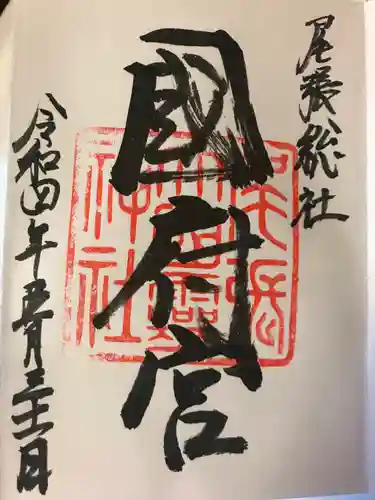 尾張総社
國府宮
令和四年五月三十一日
尾張
大國靈
神社